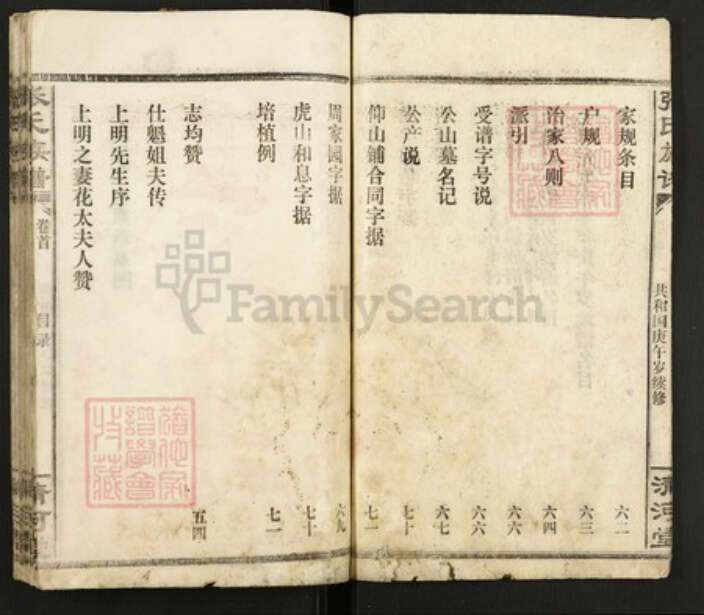 张氏族谱
共和国庚午岁续修
清河堂
家规条目 六二
户规 六三
治家八则 六四
派引 六六
受谱字号说 六六
公山墓名记 六七
公产说 七十
仰山铺合同字据 七一
周家园字据 六九
虎山和息字据 七十
培植例 七一
志均赞 五四
仕魁姐夫传
上明先生序
上明之妻花太夫人赞
张氏族谱
卷首
目录
清河
FamilySearch